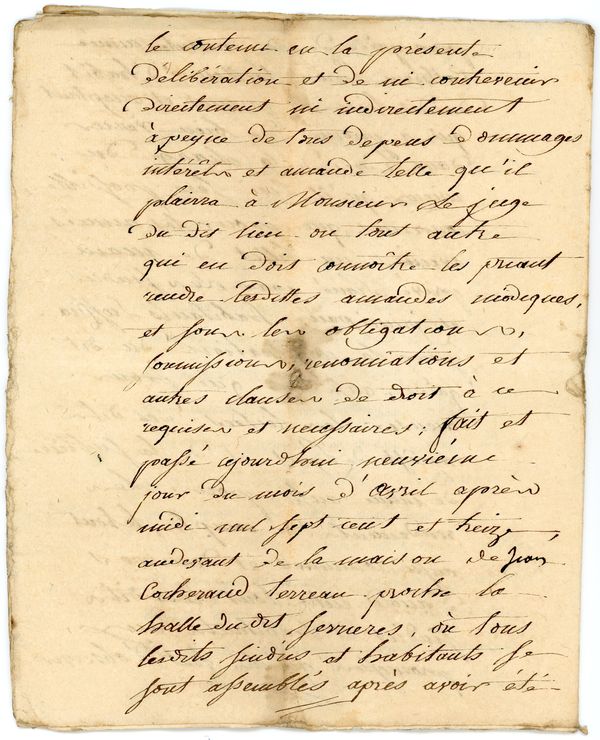 le contenu en la présente
delibération et de ni contrevenir
directement ni indirectement
à peyne de tous depens dommages
intérêts et amande telle qu'il
plairra à Monsieur Le juge
du dit lieu ou tout autre
qui en doit connoître les priant
rendre lesdittes amandes modiques,
et sous les obligations,
soumissions, renonciations et
autres clauses de droit à ce
requises et necessaires; fait et
passé ajourdhui neuvième
jour du mois d'avril après
midi mil sept cent et treize,
audevant de la maison de Jean
Cocheraud terreau proche la
halle dudit serrieres, où tous
lesdits sindics et habitants se
sont assemblés après avoir été